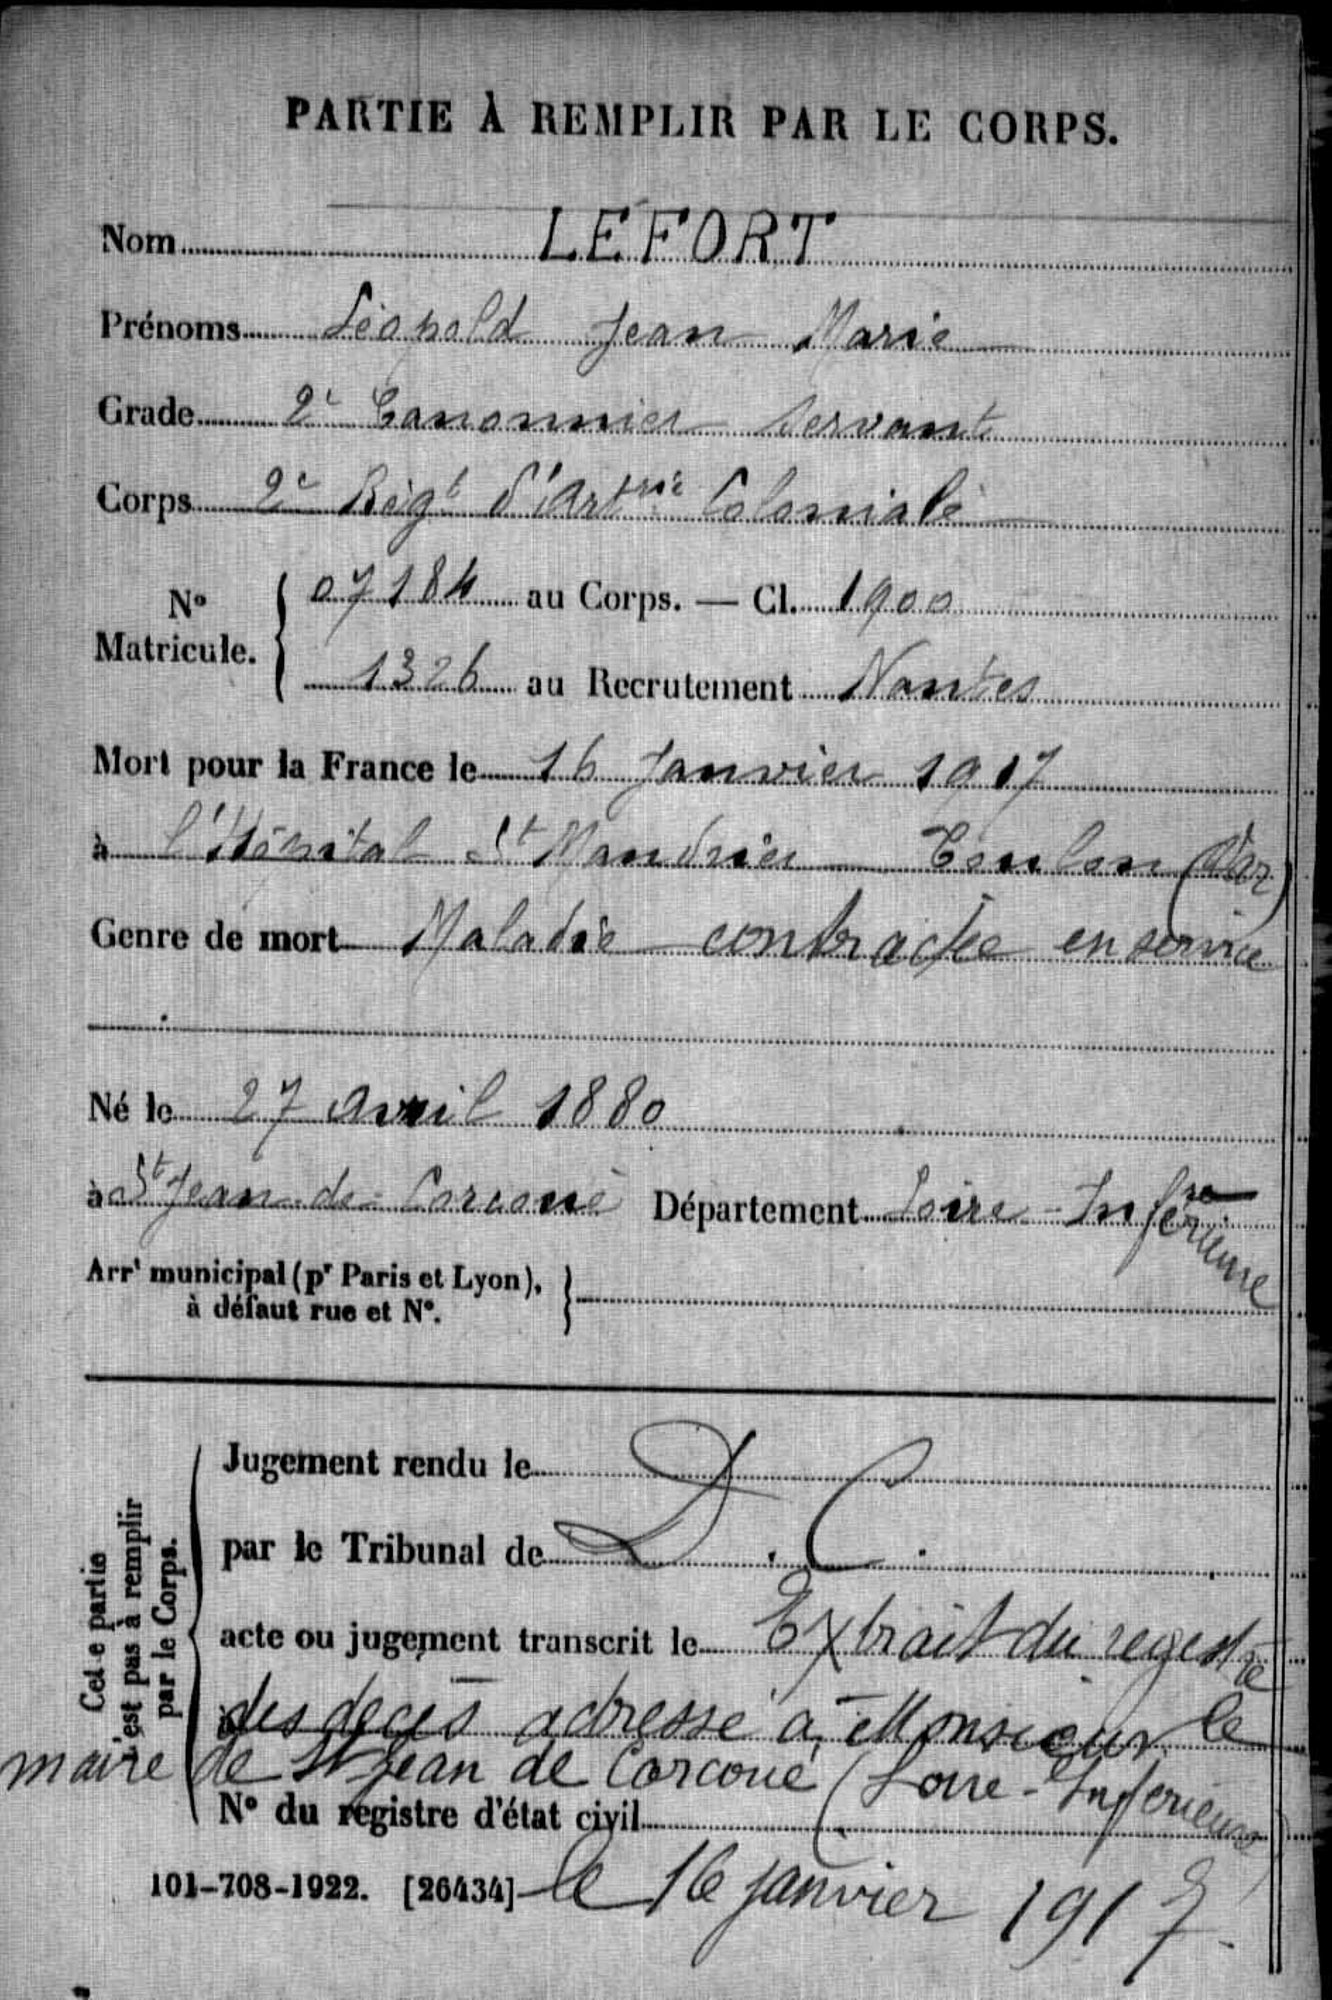 PARTIE À REMPLIR PAR LE CORPS.
Nom LEFORT
Prénoms Léopold Jean Marie
Grade 2e Canonnier Servant
Corps 2e Régt d'Artrie Coloniale
No Matricule. { 07184 au Corps. — Cl. 1900
1326 au Recrutement Nantes
Mort pour la France le 16 Janvier 1917
à l'Hôpital St Mandrier Toulon (Var)
Genre de mort Maladie contractée en service
Né le 27 Avril 1880
à St Jean de Corcoué Département Loire-Inférieure
Arrt municipal (pr Paris et Lyon), à défaut rue et No. }
Cette partie n'est pas à remplir par le Corps.
Jugement rendu le
par le Tribunal de D. C.
acte ou jugement transcrit le Extrait du registre
des décès adressé à Monsieur le
maire de St Jean de Corcoué (Loire-Inférieure)
No du registre d'état civil
101-708-1922. [26434] le 16 janvier 1917.